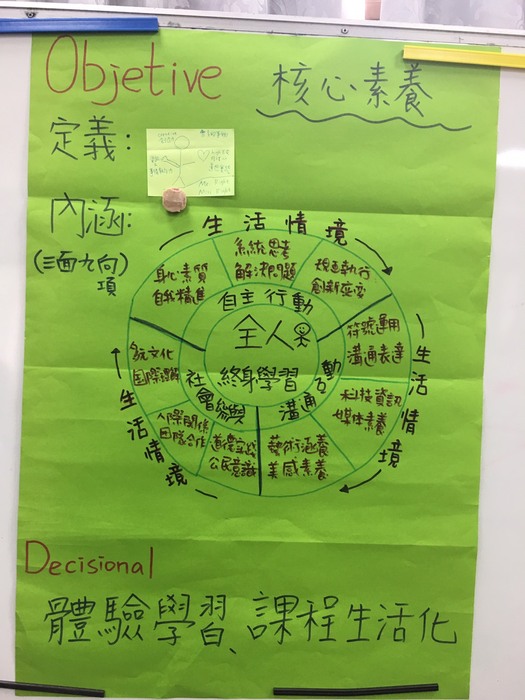 Objetive
核心素養
定義：
內涵：
(三面九向)
項
生活情境
系統思考
解決問題
規畫執行
創新應變
身心素質
自我精進
自主行動
符號運用
溝通表達
全人
終身學習
生活情境
多元文化
國際理解
社會參與
溝通互動
科技資訊
媒体素養
人際關係
團隊合作
道德實踐
公民意識
藝術涵養
美感素養
生活情境
Decisional
體驗學習、課程生活化